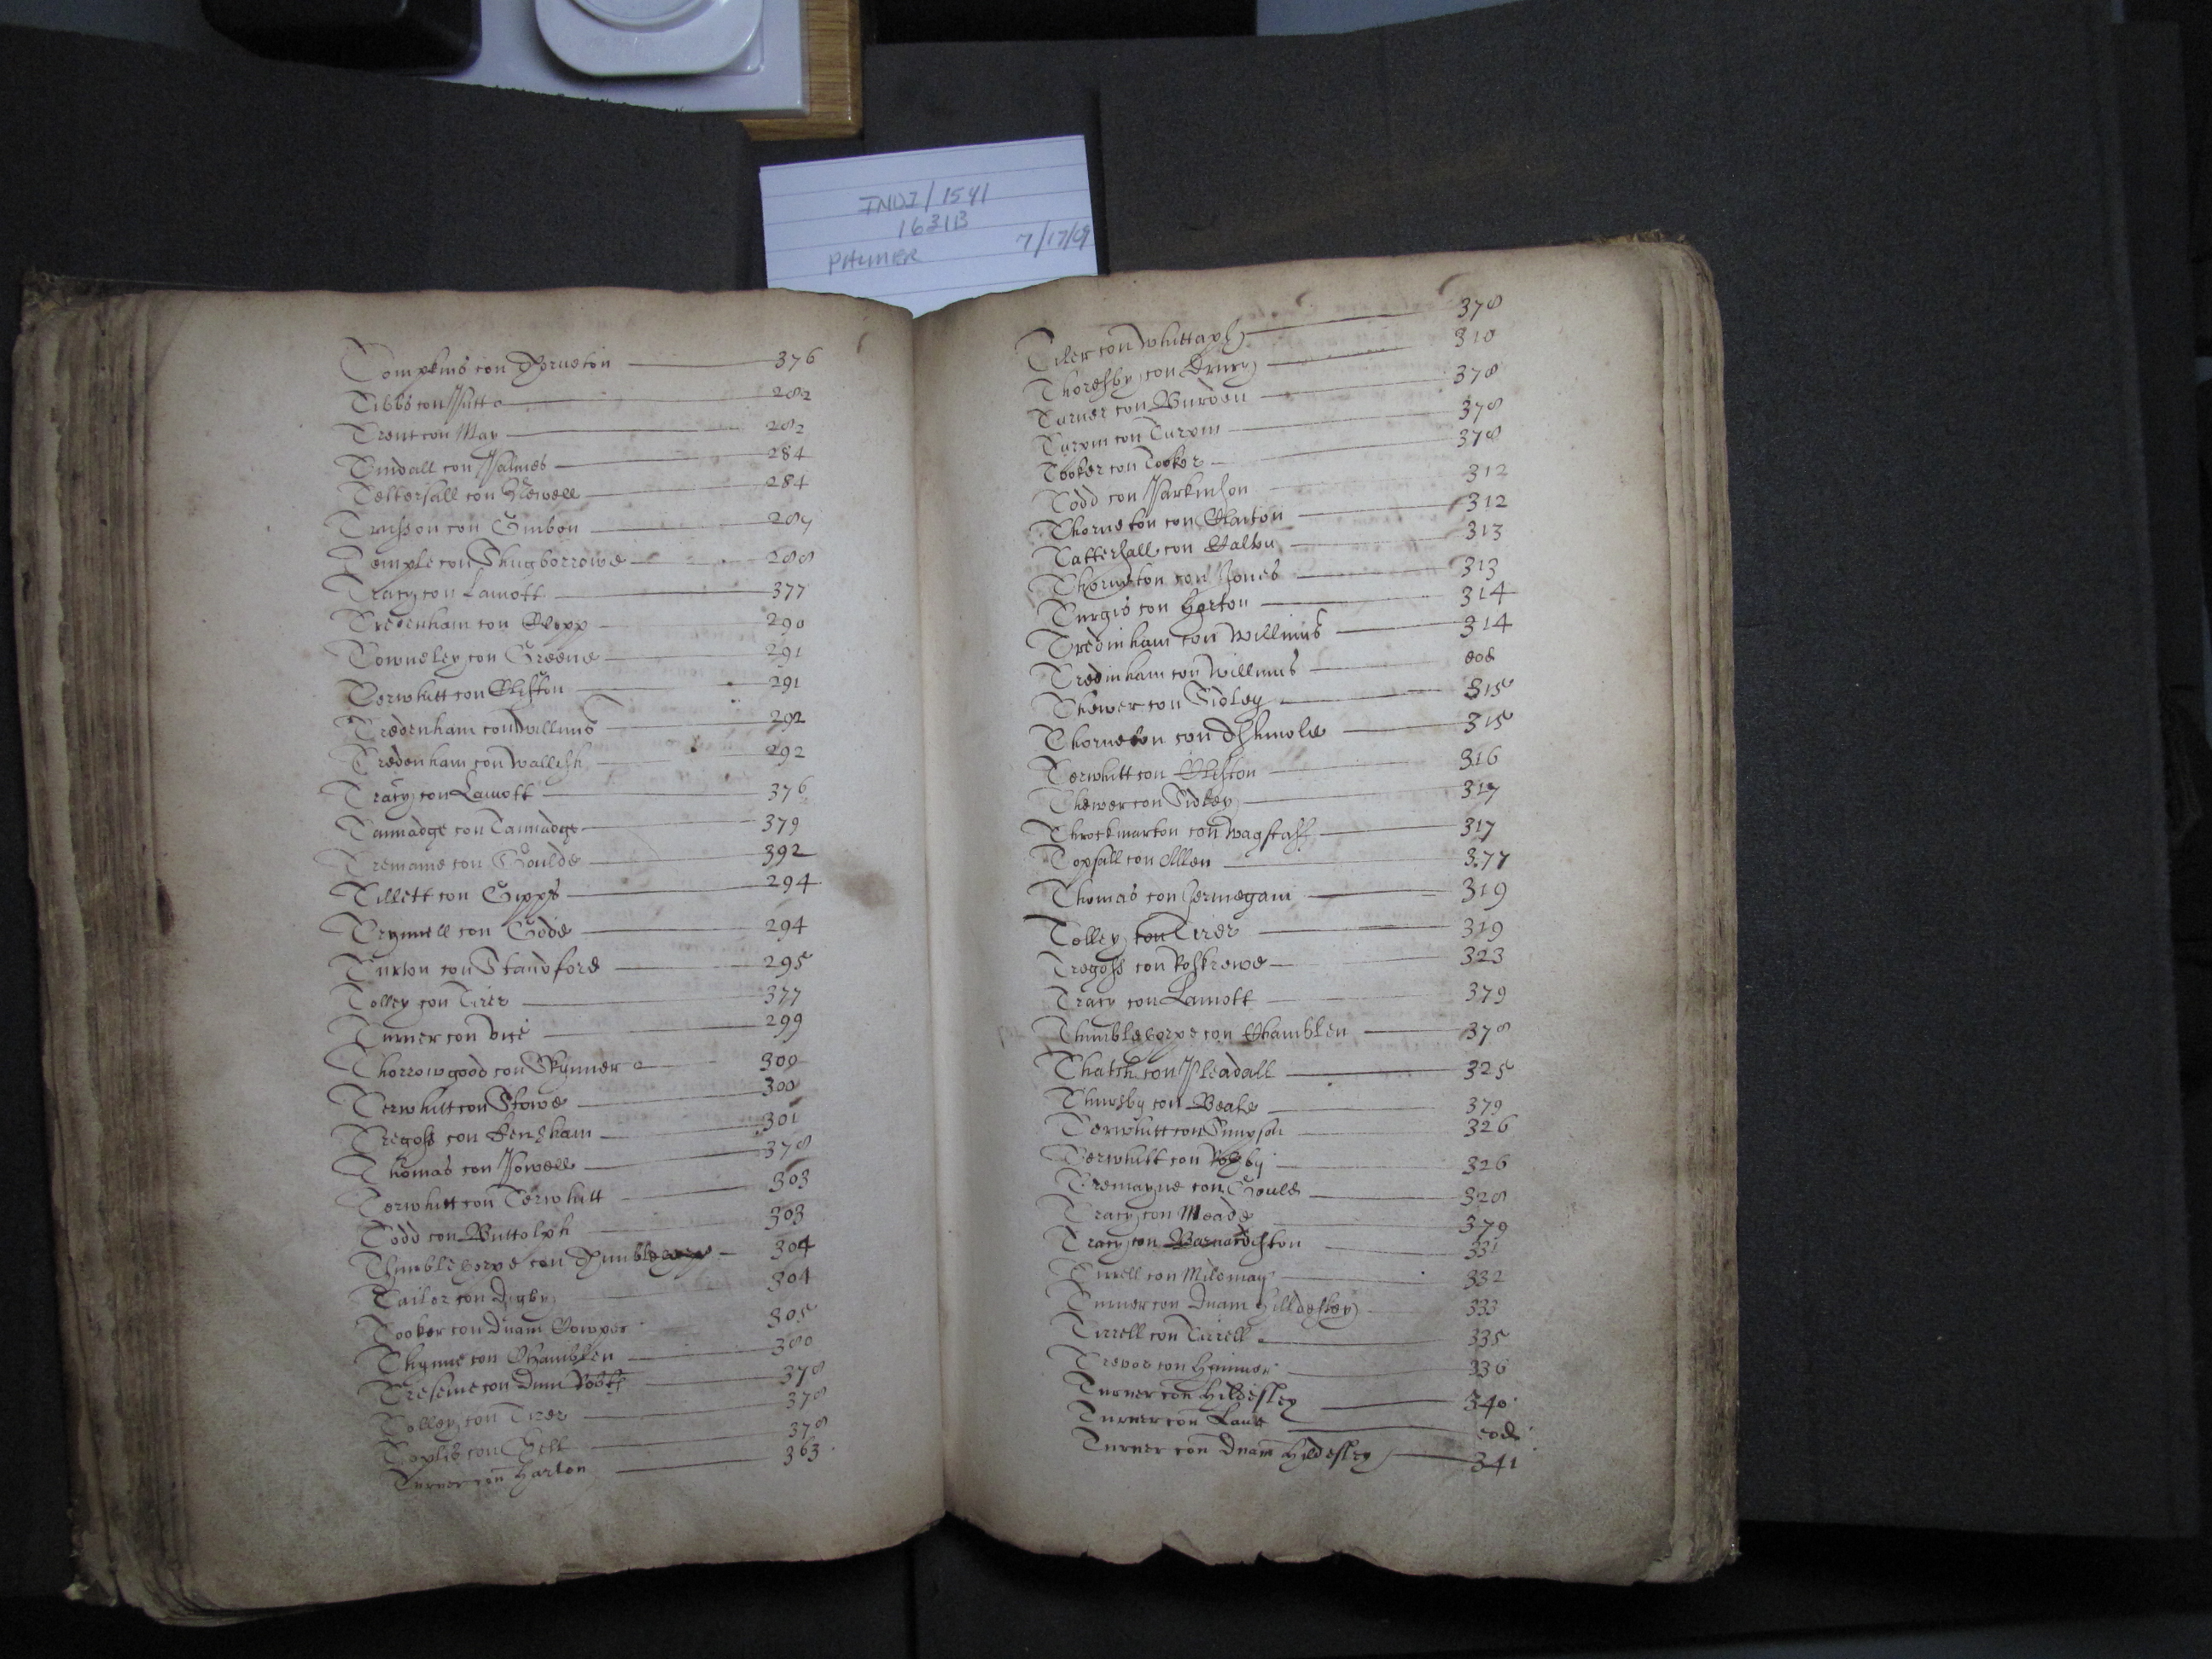 INDI/1541
1631B
PALMER 7/17/09
Tompkins con 376
Tibbs con Putt 282
Trent con May 282
Tindall con Palmes 284
Teltersall con Newell 284
con Gunbon
Temple con Shugborrowe 288
Tracy con Lamott 377
Tredenham con 290
Towneley con Greene 291
Terwhitt con Clifton 291
Tredenham con Willims 292
Tredenham con Wallish 292
Tracy con Lamott 376
Tamadge con Tamadge 379
Tremaine con Goulde 392
Tillett con Gipps 294
con Gode 294
Turton con Standford 295
Tolley con Tirer 377
Turner con Vice 299
Thorrowgood con Skynner 300
Terwhitt con Stowe 300
Tregoss con Hensham 301
Thomas con Powell 378
Terwhitt con Terwhitt 303
Todd con Buttolph 303
Thimblethorpe con 304
Tailor con Digby 304
Tooker con Dnam Cowper 305
Thynne con Chamblen 380
con Dnm 378
Tolley con Tirer 378
Toplis con Gell 378
Turner con Harton 363
Tiler con Whittaph 378
Thoresby con Drury 310
Turner con Burden 378
Turpin con Turpin 378
Tooker con Tooker 378
Todd con Parkinson 312
Thorneton con Claiton 312
Tattersall con Halton 313
Thorneton con Jones 313
Turgis con Horton 314
Tredinham con Willims 314
Tredinham con Willims eod
Thewer con Sidley 315
Thorneton con Ashmole 315
Terwhitt con Clifton 316
Thewer con Sidley 317
Throckmarton con Wagstaff 317
Topsall con Allen 377
Thomas con Jermegam 319
Tolley con Tirer 319
Tregoss con Roskrewe 323
Tracy con Lamott 379
Thimblethorpe con Chamblen 378
Thatch con Pleadall 325
Thursby con Beale 379
Terwhitt con Simpson 326
Terwhitt con 326
Tremayne con Gould 328
Tracy con Meade 379
Tracy con Barnardiston 331
Tirrell con Mildmay 332
Turner con Dnam Hilldesley 333
Tirrell con Tirrell 335
Trevor con Hanmer 336
Turner con Hildesley 340
Turner con Lane eod
Turner con Dnam Hildesley 341